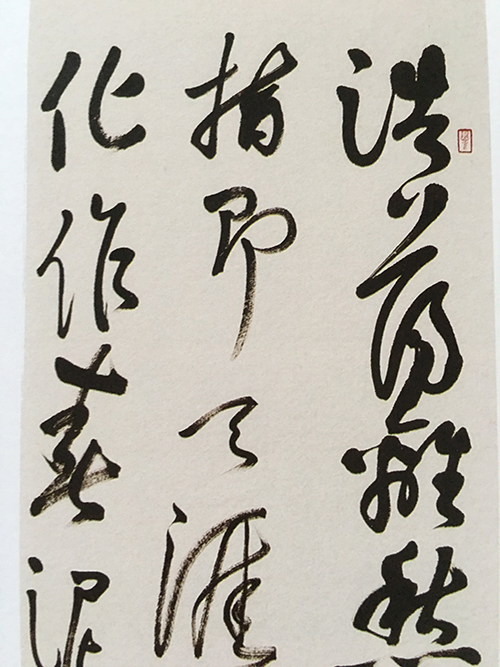 浩蕩離愁
指即天涯
化作春泥